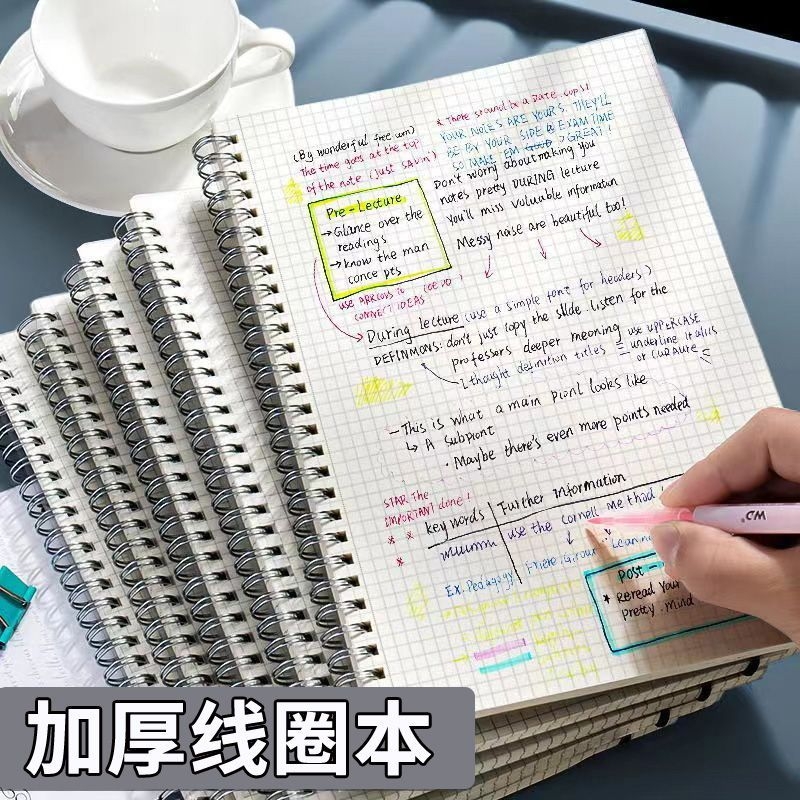 (By wonderful free um)
The time goes at the top
of the note (just SAyin)
* There should be a DATE, oops!
YOUR NOTES ARE YOURS. THEY'LL
BE BY YOUR SIDE @ EXAM TIME
SO MAKE EM GOOD GREAT!
Don't worry about making you
notes pretty DURING lecture
You'll miss valuable information
Messy naise are beautiful too!
Pre-Lecture
→Glance over the
readings
→know the man
conce pts
USE ARROWS TO
CONNECT IDEAS
During lecture (use a simple font for headers)
DEFINMONS: don't just copy the slide. listen for the
professors deeper meoning
use UPPERCASE
underline italics
or CURAUTE
I thought definition titles =
-This is what a main pionl looks like
↳ A Subpiont
• Maybe there's even more points needed
STAR The
IMPORTANT done!
* *
*
key words | Further Information
use the cornell method!
Ex. Pedagogy
POST -
* REREAD YOUR
Pretty. mind
加厚线圈本